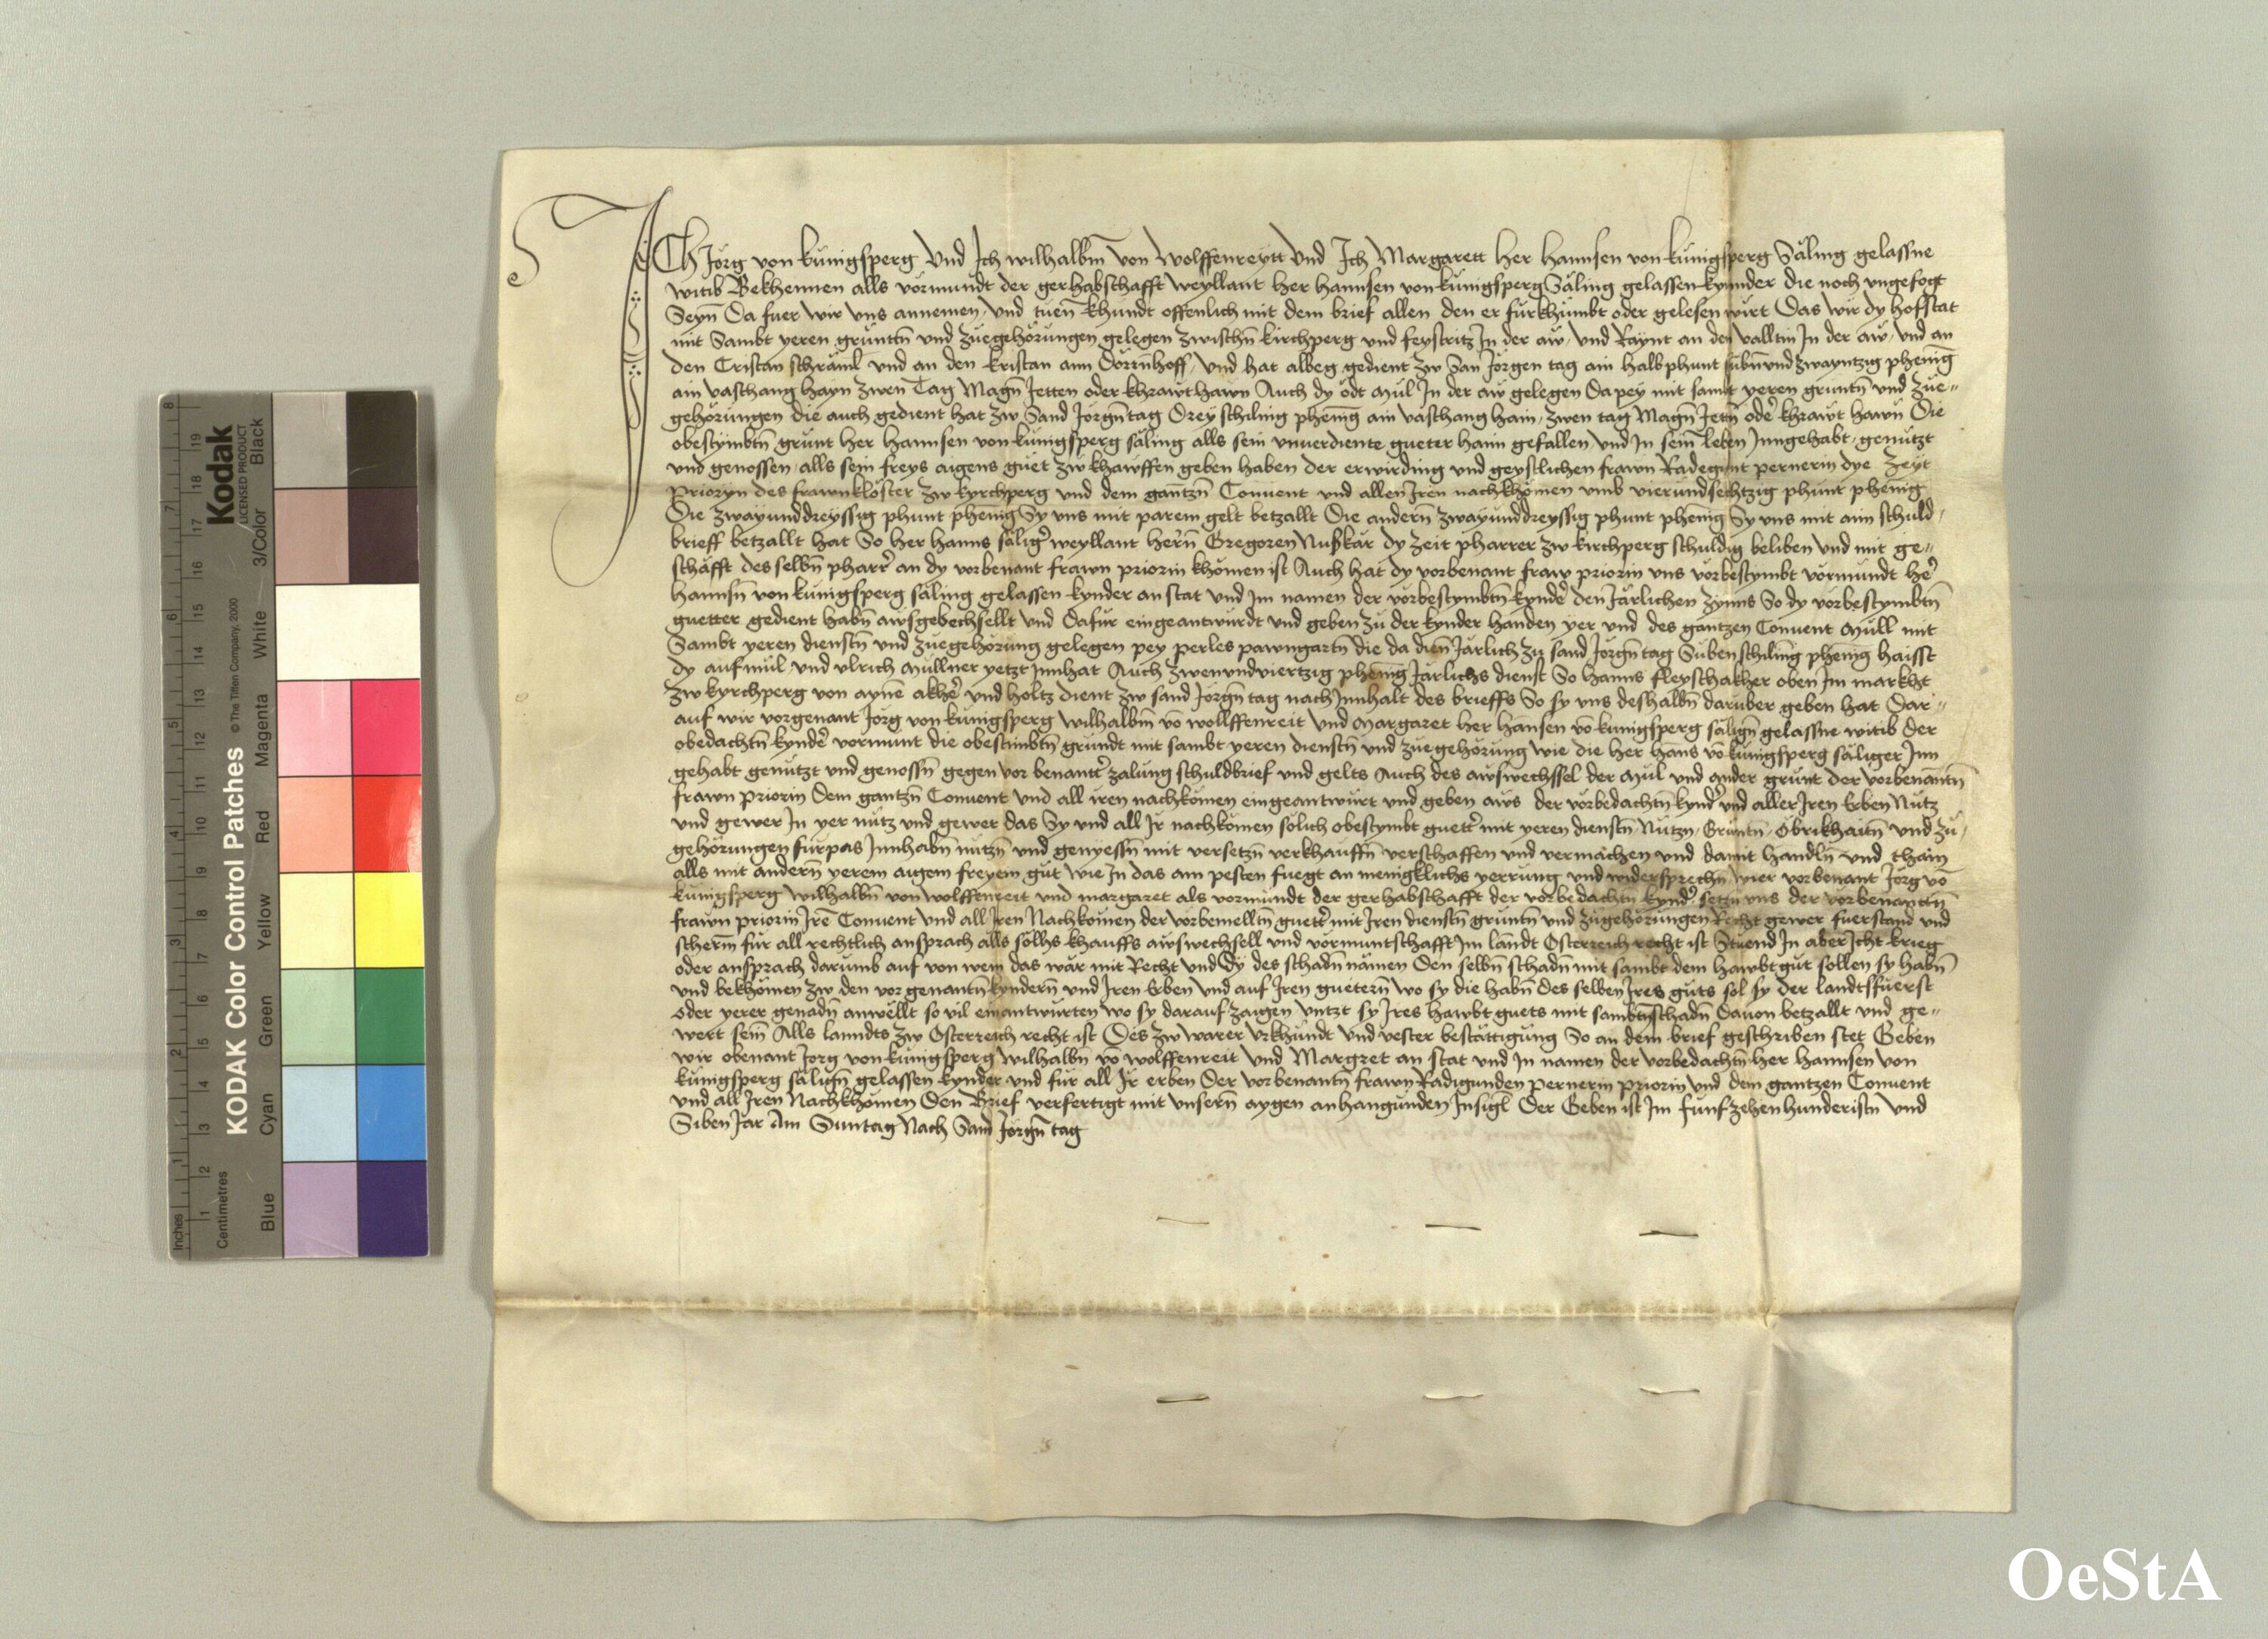 ICh Jorg von kunigsperg Und Ich wilhalbm von Wolffenreytt Und Ich Margarett Her Hannsen von kunigsperg Saling gelassne
witib Bekhennen alls vormundt der gerhabschafft weyllant her hannsen von kunigsperg Saling gelassen kynnder die noch ungefogt
Seyn Da fuer wir uns annemen und tuen khundt offenlich mit dem brief allen den er furkhumbt oder gelesen wirt Das wir dy hofstat
mit Sambt yeren gruntn und zuegehorungen gelegen zwischn kirchperg und feystritz In der aw und Raynt an den valltin In der aw und an
den Cristan schraml und an den kristan am Dorrnhoff und hat albeg gedient zw San Jorgen tag ain halb phunt subn und zwayntzig phenig
ain vaschang hayn zwen Tag Magn Jetten oder khrawt hawn Auch dy odt mul In der aw gelegen Da pey mit sambt yeren gruntn und zue-
gehorungen die auch gedient hat zw Sand Jorgn tag Drey schiling phenig ain vaschang hain zwen tag Magn Jetn oder khrawt hawn Die
obestymbtn grunt her hannsen von kunigsperg saling alls sein unverdiente gueter haim gefallen und In sein leben Inngehabt genutzt
und genossen alls sein freys aigens guet zw khawffen geben haben der erwirding und geystlichen frawn Radegunt pernerin dye zeyt
prioryn des frawnkloster zw kyrchperg und dem gantzn Convent und allen Iren nachkhomen umb vierundsechtzig phunt phenig
Die zwayunddreyssig phunt phenig Sy uns mit parem gelt betzallt Die andern zwayunddreyssig phunt phenig Sy uns mit aim schuld-
brieff betzallt hat So her hanns saliger weyllant hern Gregoren Nuskar dy zeit pharrer zw kirchperg schuldig beliben und mit ge-
schafft des selbn pharrer an dy vorbenant frawn priorin khomen ist Auch hat dy vorbenant fraw priorin uns vorbestymbt vormundt her
hannsn von kunigsperg saling gelassen kynder an stat und Im namen der vorbestymbtn kynder den Jarlichen zynns So dy vorbestymbtn
guetter gedient habn awsgebechsellt und Dafur eingeantwurdt und geben zu der kynder handen yer und des gantzen Convent mull mit
Sambt yeren dienstn und zuegehorung gelegen pey perles pawngartn die da dien Jarlich zu sand Jorgn tag Suben schiling phenig haisst
dy aufmul und ulrich mullner yetzt Innhat Auch zwenundviertzig phenig Jarlichs dienst So hanns fleyschakher oben Im markht
zw kyrchperg von ayne akher und holtz dient zw sand Jorgn tag nach Innhalt des brieffs So sy uns deshalbn daruber geben hat Dar-
auf wir vorgenant Jorg von kunigsperg wilhalbm vo wollffenreit und margaret her hansen vo kunigsperg salign gelassne witib der
obedachtn kynder vormunt die obestimbtn grundt mit sambt yeren dienstn und zuegehorung wie die her hans vo kunigsperg saliger Inn
gehabt genutzt und genossn gegen vor benanter zalung schuldbrief und gelts Auch des awswechssel der mul und ander grunt der vorbenantn
frawn priorin Dem gantzn Convent und all iren nachkomen eingeantwurt und geben aws der vorbedachtn kynder und aller Iren Erben Nutz
und gewer In yer nutz und gewer das Sy und all Ir nachkomen solich obestymbt gueter mit yeren dienstn Nutzn Gruntn Obrikhaitn und zu-
gehorungen furpas Innhabn nutzn und genyessn mit versetzn verkhauffn verschaffen und vermachen und damit handln und thain
alls mit andern yerem aigem freyem gut wie In das am pesten fuegt an meniklichs yerrung und widersprechn wier vorbenant Jorg vo
kunigsperg wilhalbm von wolffenreit und margaret als vormundt der gerhabschafft der vorbedachtn kynder setzn uns der vorbenantn
frawn priorin Ire Convent und all Iren Nachkomen der vorbemelltn gueter mit Iren dienstn gruntn und zugehorungen Recht gewer fuerstand und
scherm fur all rechtlich ansprach alls solhs khauffs awswechsell und vormuntschafft Im landt Osterreich recht ist Stuend In aber Icht krieg
oder ansprach darumb auf von wem das war mit Recht und Dy des schadn namen Den selbn schadn mit sambt dem hawbt gut sollen sy habn
und bekhomen zw den vorgenantn kyndern und Iren Erben und auf Iren guetern wo sy die habn des selben Ires guts sol sy der landtsfuerst
oder yerer genadn anwellt so vil einantwurten wo sy darauf zaigen untzt sy Ires hawbt guets mit sambtn schadn Davon betzallt und ge-
wert sein Alls lanndts zw Osterreich recht ist Des zw warer urkhundt und vester bestattigung So an dem brief geschriben stet Geben
wir obenant Jorg von kunigsperg wilhalbm vo wolffenreit und Margret an stat und In namen der vorbedachtn her hannsen von
kunigsperg salign gelassen kynder und fur all Ir erben Der vorbenantn frawn Radigunden pernerin priorin und dem gantzen Convent
und all Iren Nachkhomen Den Brief verfertigt mit unsern aygen anhangunden Insigl Der Geben ist Im funfzehenhunderistn und
Siben Jar Am Suntag Nach Sand Jorgn tag
KODAK Color Control Patches
© The Tiffen Company, 2000
Kodak
LICENSED PRODUCT
Inches
Centimetres
Blue
Cyan
Green
Yellow
Red
Magenta
White
3/Color
Black
OeStA